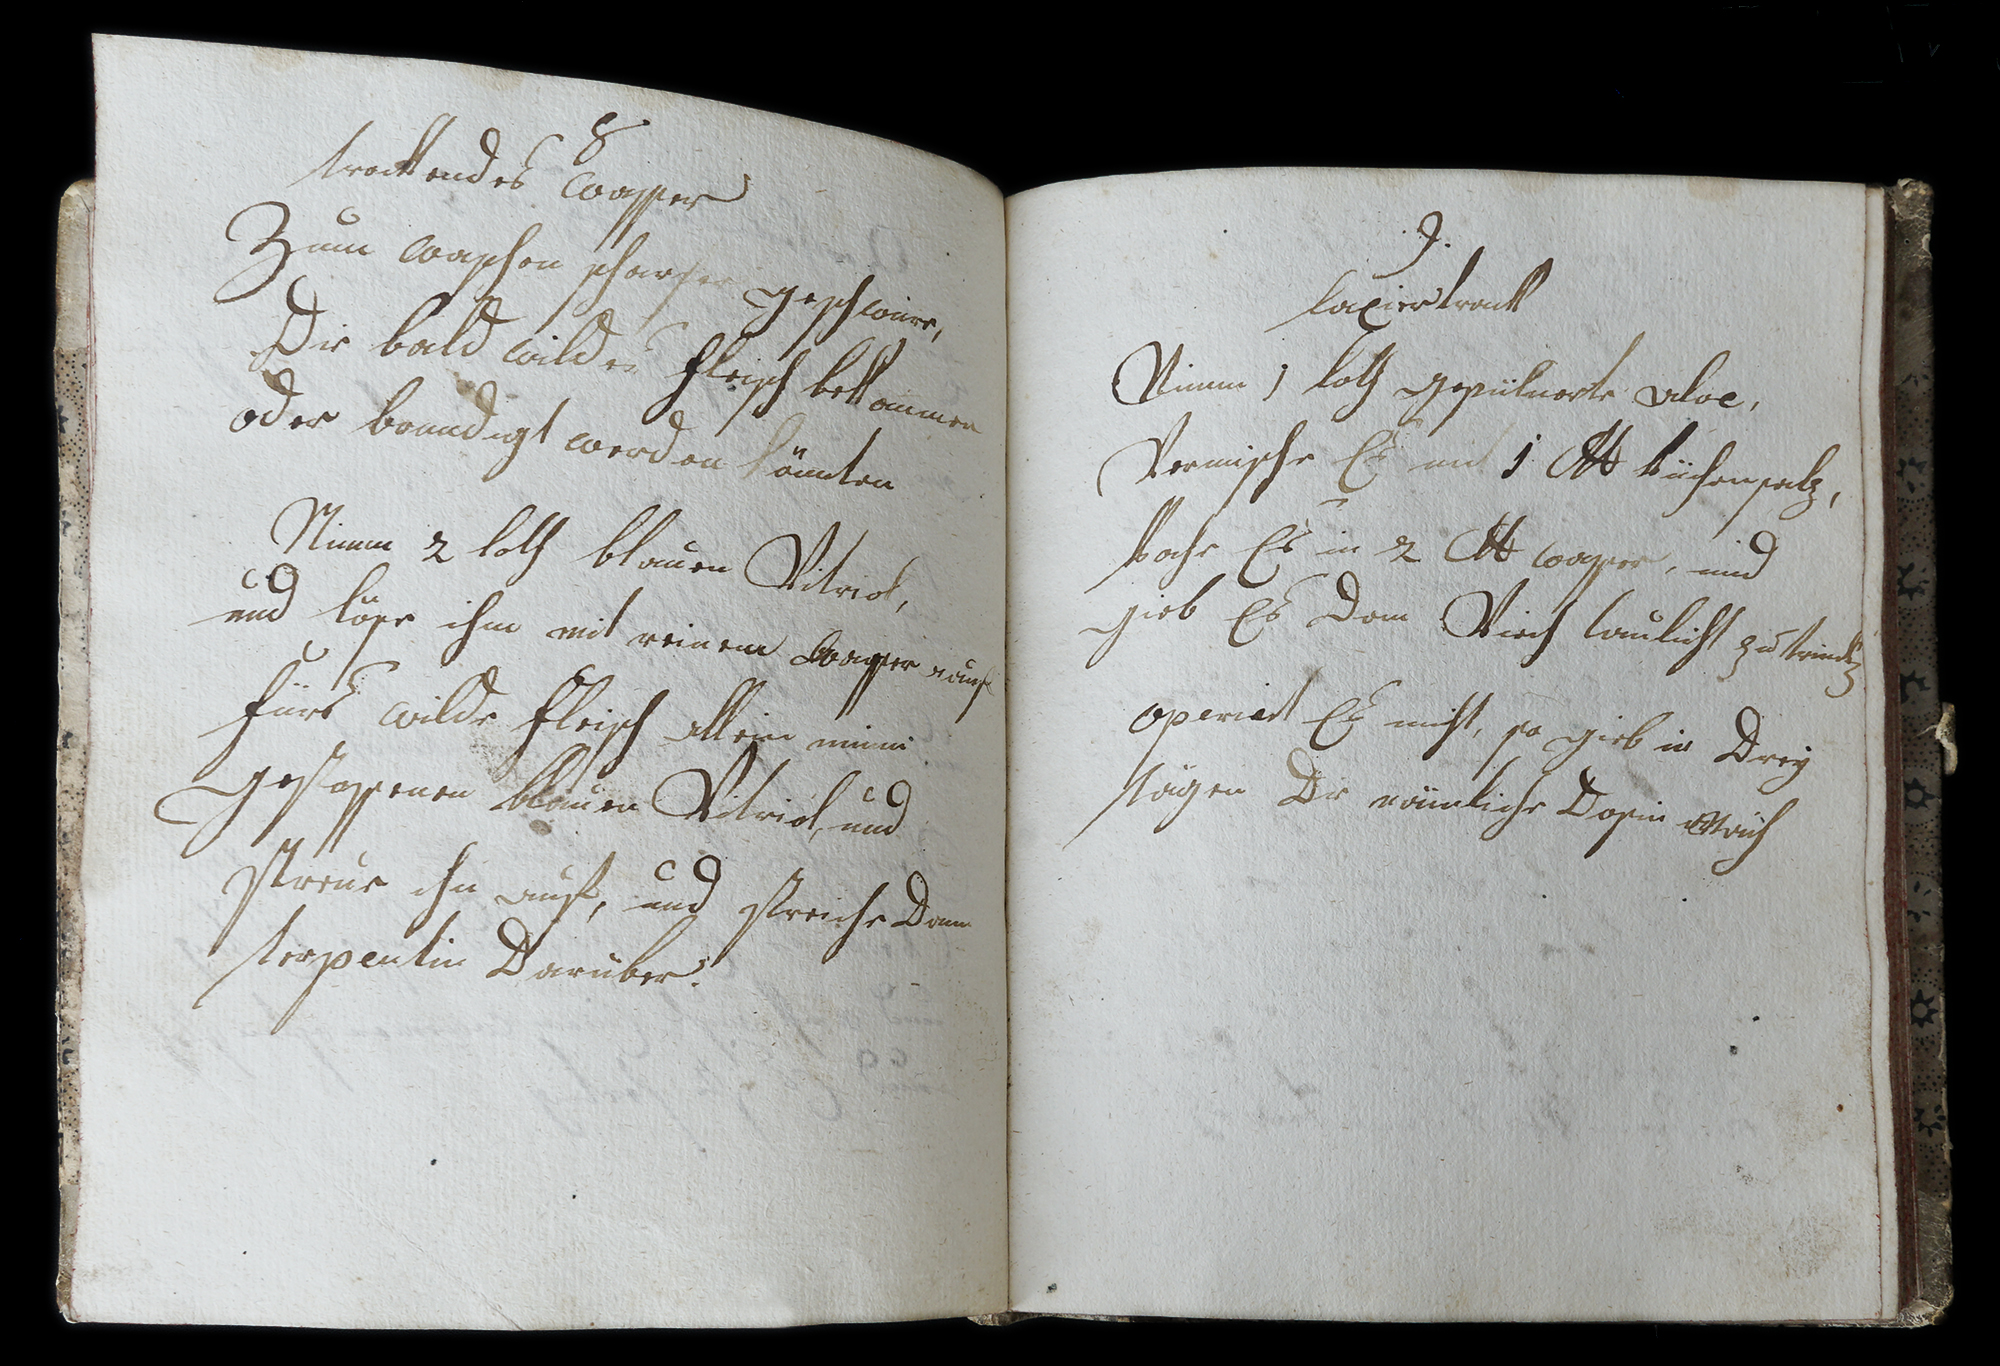 8
trockendes Wasser
Zum waschen scharfer geschwüre,
Die bald wildes fleisch bekkommen
oder beendigt werden könnten
Nimm 2 loth blauen Vitriol,
und löse ihm mit reinem Wasser auf
fürs wilde fleisch allein nimm
gestossenen blauen Vitriol, und
streue ihn auf, und streiche Dann
terpentin Darüber.
9.
laxiertrank
Nimm 1 loth gepülverte aloe,
Vermische Es mit 1 ℔ küchensalz,
koche Es in 2 ℔ wasser, und
gieb Es Dem Vieh laulicht zu trinken
operiert Es nicht, so gieb in Drey
tägen Die nämliche Dosin